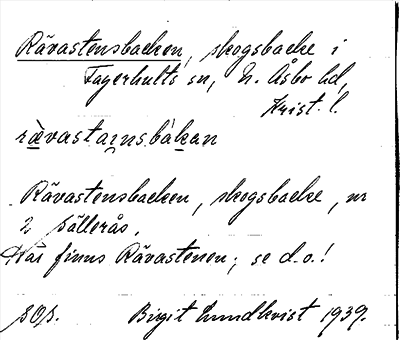 Rävastensbacken, skogsbacke i
Fagerhults sn, N. Åsbo hd,
Krist. l.
rævastaınsbàkan
Rävastensbacken, skogsbacke, nr
2 Källerås.
Här finns Rävastenen; se d.o.!
Birgit Lundkvist 1939.